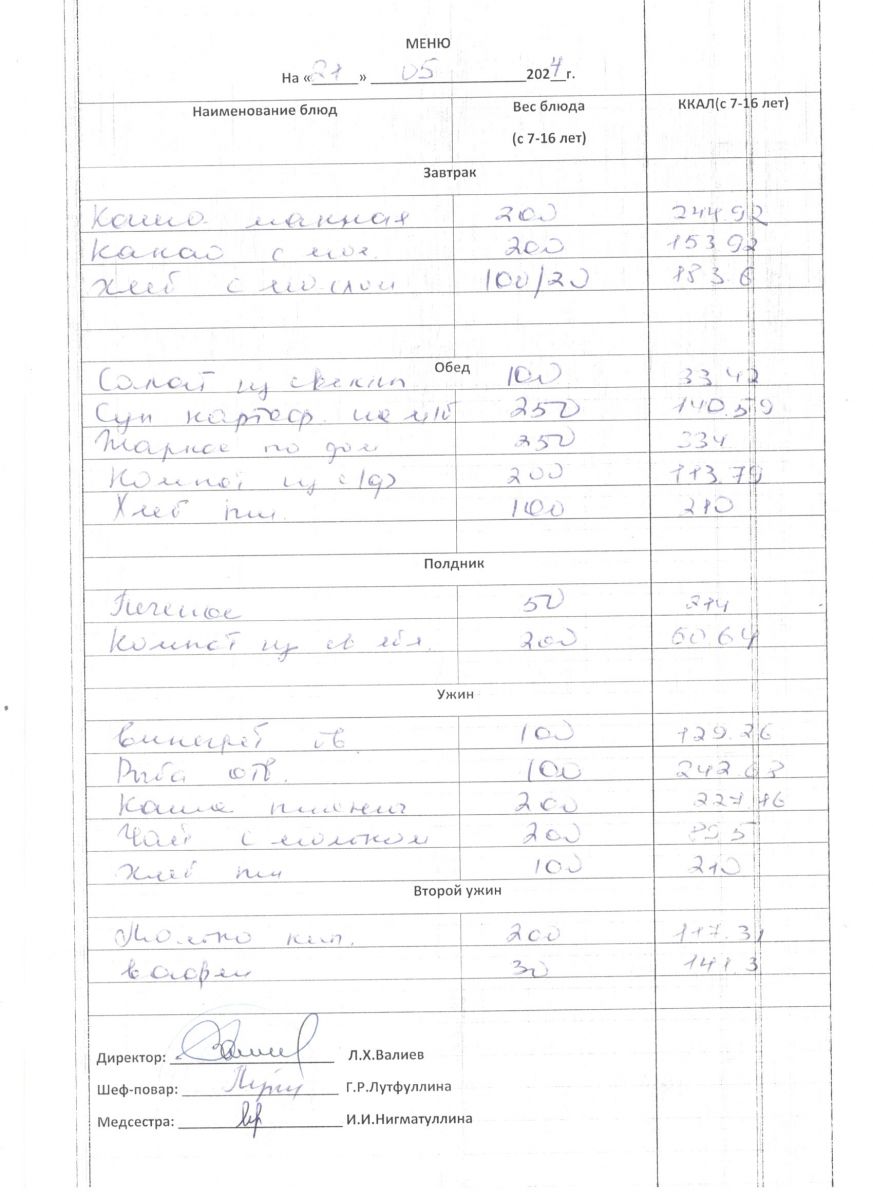 МЕНЮ
На «21» 05 2024 г.
Наименование блюд Вес блюда (с 7-16 лет) ККАЛ(с 7-16 лет)
Завтрак
Каша манная 200 244.92
Какао с мол. 200 153.92
Хлеб с маслом 100/20 183.6
Обед
Салат из свеклы 100 33.42
Суп картоф. на м/б 250 140.59
Жаркое по дом 250 334
Компот из с/ф 200 113.79
Хлеб пш. 100 210
Полдник
Печенье 50 214
Компот из св ябл. 200 60.64
Ужин
Винегрет ов 100 129.26
Рыба отв. 100 242.63
Каша пшенная 200 227.16
Чай с молоком 200 89.5
Хлеб пш 100 210
Второй ужин
Молоко кип. 200 117.31
вафли 30 141.3
Директор: Л.Х.Валиев
Шеф-повар: Г.Р.Лутфуллина
Медсестра: И.И.Нигматуллина